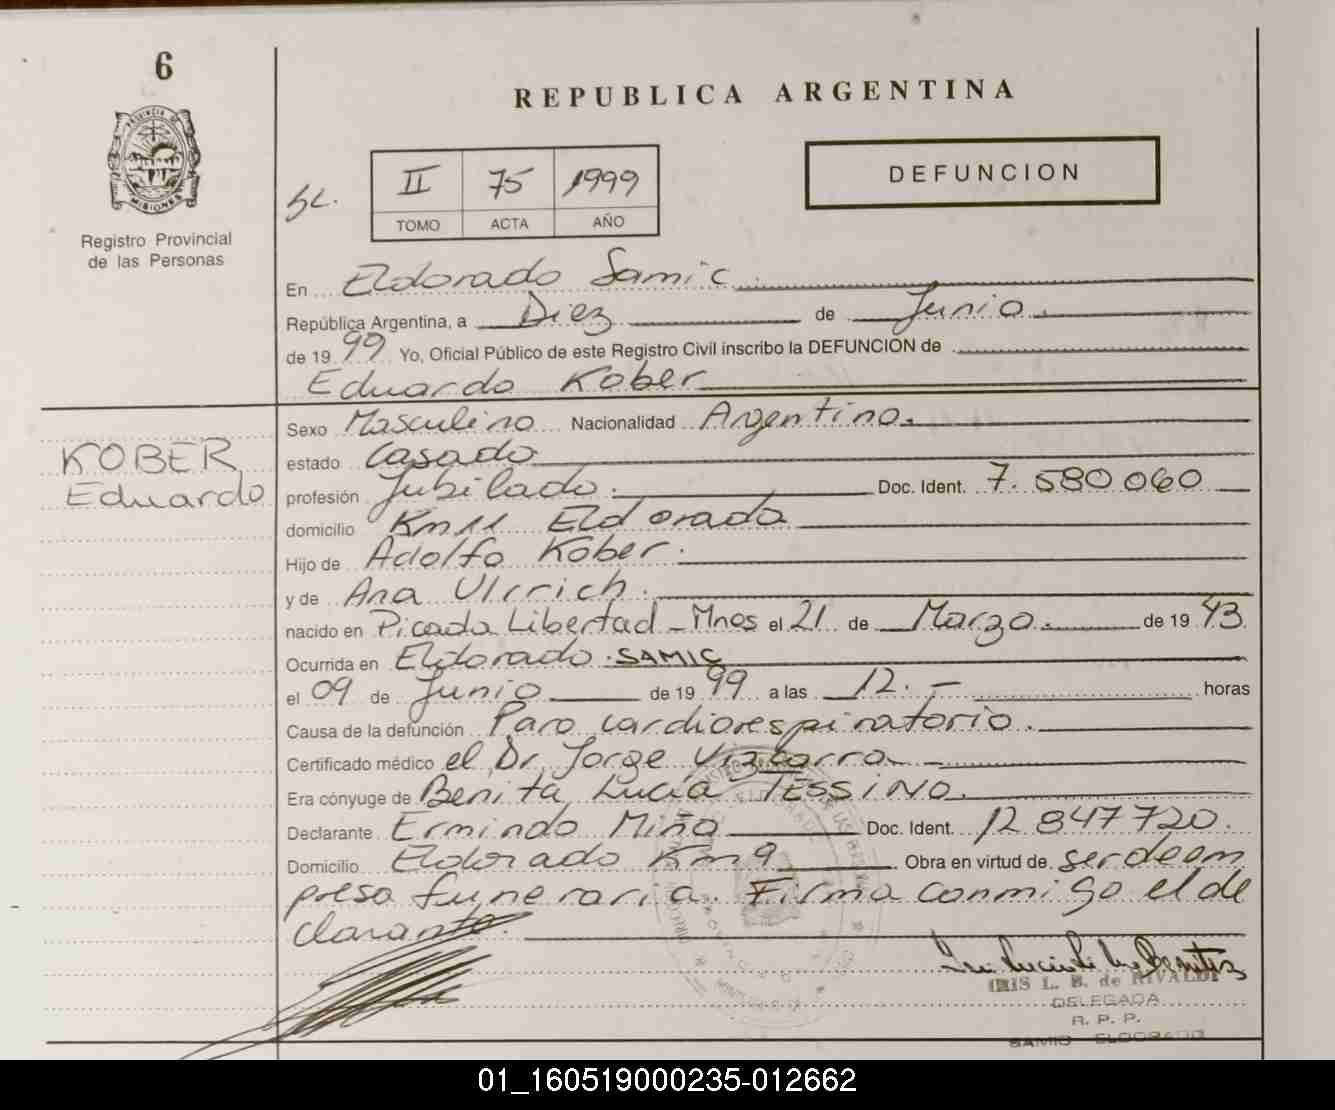 6
REPUBLICA ARGENTINA
PROVINCIA DE
MISIONES
Registro Provincial
de las Personas
II 75 1999
TOMO ACTA AÑO
DEFUNCION
En Eldorado Samic
República Argentina, a Diez de Junio
de 1999 Yo, Oficial Público de este Registro Civil inscribo la DEFUNCION de
Eduardo Kober
KOBER
Eduardo
Sexo Masculino Nacionalidad Argentino.
estado Casado
profesión Jubilado. Doc. Ident. 7.580060
domicilio Km 11 Eldorado
Hijo de Adolfo Kober.
y de Ana Ulrrich.
nacido en Picada Libertad - Mnes el 21 de Marzo. de 1943
Ocurrida en Eldorado. SAMIC
el 09 de Junio de 1999 a las 12. - horas
Causa de la defunción Paro cardiorespiratorio.
Certificado médico el Dr Jorge Vizcarra
Era cónyuge de Benita Lucía TESSINO.
Declarante Ermindo Miño Doc. Ident. 12847720.
Domicilio Eldorado Km 9 Obra en virtud de ser de em
presa funeraria. Firma conmigo el de
clarante.
IRIS L. B. de RIVALDI
DELEGADA
R. P. P.
SAMIC ELDORADO
01_160519000235-012662